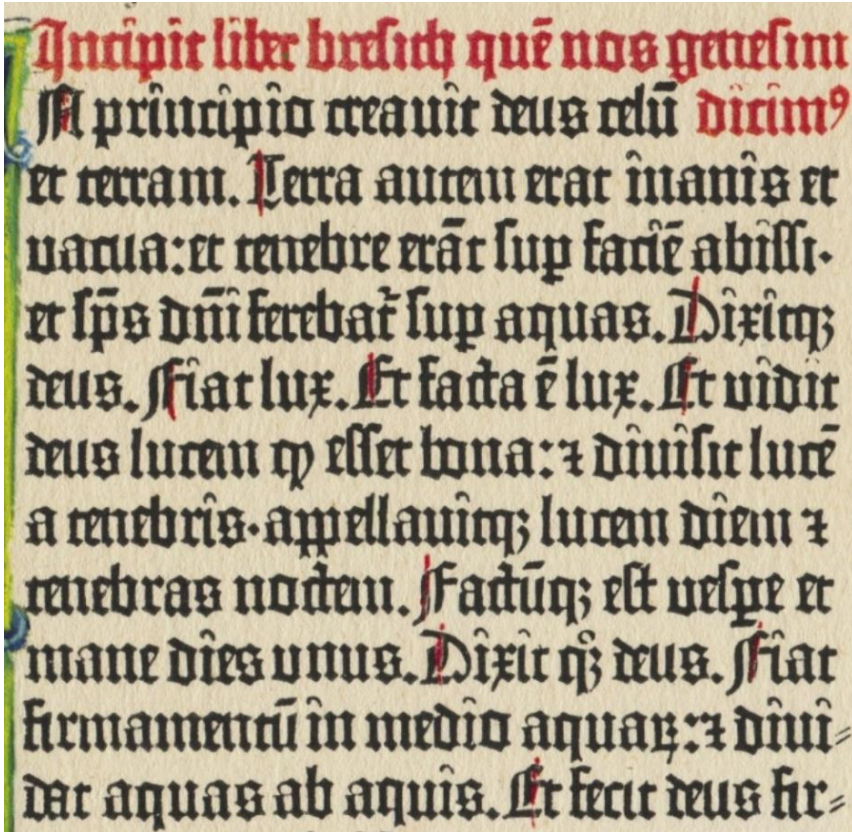 Incipit liber bresith quē nos genesim
A principio creauit deus celū dicimꝰ
et terram. Terra autem erat inanis et
uacua: et tenebre erāt sup faciē abissi·
et sp̄s dn̄i ferebat᷑ sup aquas. Dixitqꝫ
deus. Fiat lux. Et facta ē lux. Et uidit
deus lucem ꝙ esset bona: ⁊ diuisit lucē
a tenebris· appellauitqꝫ lucem diem ⁊
tenebras noctem. Factūqꝫ est uesꝑe et
mane dies vnus. Dixit qꝫ̊ deus. Fiat
firmamentū in medio aquaꝝ: ⁊ diui⸗
dat aquas ab aquis. Et fecit deus fir⸗